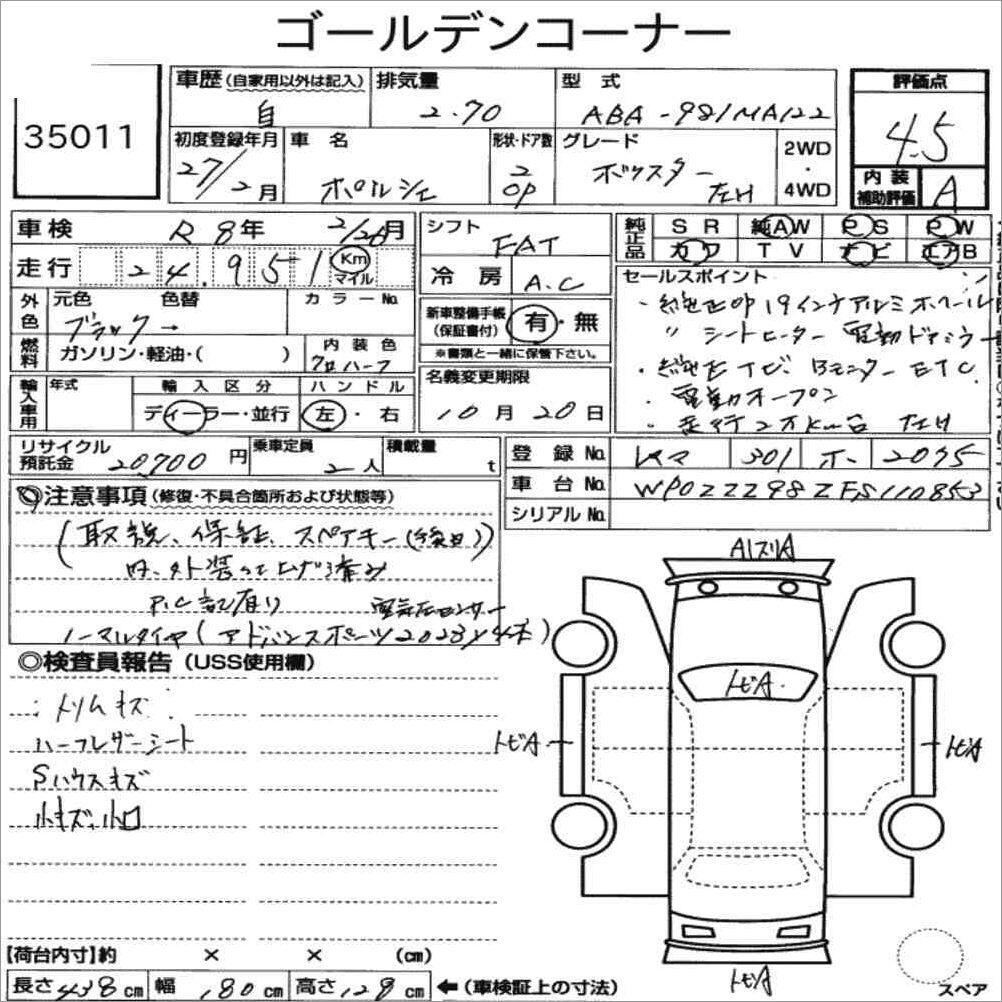 ゴールデンコーナー
35011
車歴 (自家用以外は記入) 自
排気量 2.70
型式 ABA-981MA122
評価点 4.5
初度登録年月 27/2月
車名 ポルシェ
形状・ドア数 2 OP
グレード ボクスター 左H
2WD・4WD
内装補助評価 A
車検 R 8年 2/26月
シフト FAT
純正品 SR 純AW PS PW
カワ TV ナビ エアB
走行 24.951 Km マイル
冷房 A.C
セールスポイント
・純正OP 19インチアルミホイール
〃 シートヒーター 電動ドアミラー
・純正ナビ Bモニター ETC
・電動オープン
・走行2万km台 左H
外色 元色 ブラック→ 色替 カラーNo.
新車整備手帳(保証書付) 有・無
※書類と一緒に保管下さい。
燃料 ガソリン・軽油・( )
内装色 クロハーフ
名義変更期限 10月20日
輸入車用 年式 輸入区分 ディーラー・並行 ハンドル 左・右
リサイクル預託金 20,700円
乗車定員 2人
積載量 t
登録No. 301 ホ- 2075
車台No. WP0ZZZ98ZFS110853
シリアルNo.
◎注意事項 (修復・不具合箇所および状態等)
(取説、保証、スペアキー(後日))
内、外装仕上げ済み
P.C記有り 電気圧センサー
ノーマルタイヤ(アドバンスポーツ2023y4本)
◎検査員報告 (USS使用欄)
:トリムキズ
ハーフレザーシート
Sハウスキズ
小キズ、小凹
A1スリA
トビA
トビA
トビA
トビA
【荷台内寸】約 × × (cm)
長さ438cm 幅180cm 高さ128cm ←(車検証上の寸法)
スペア